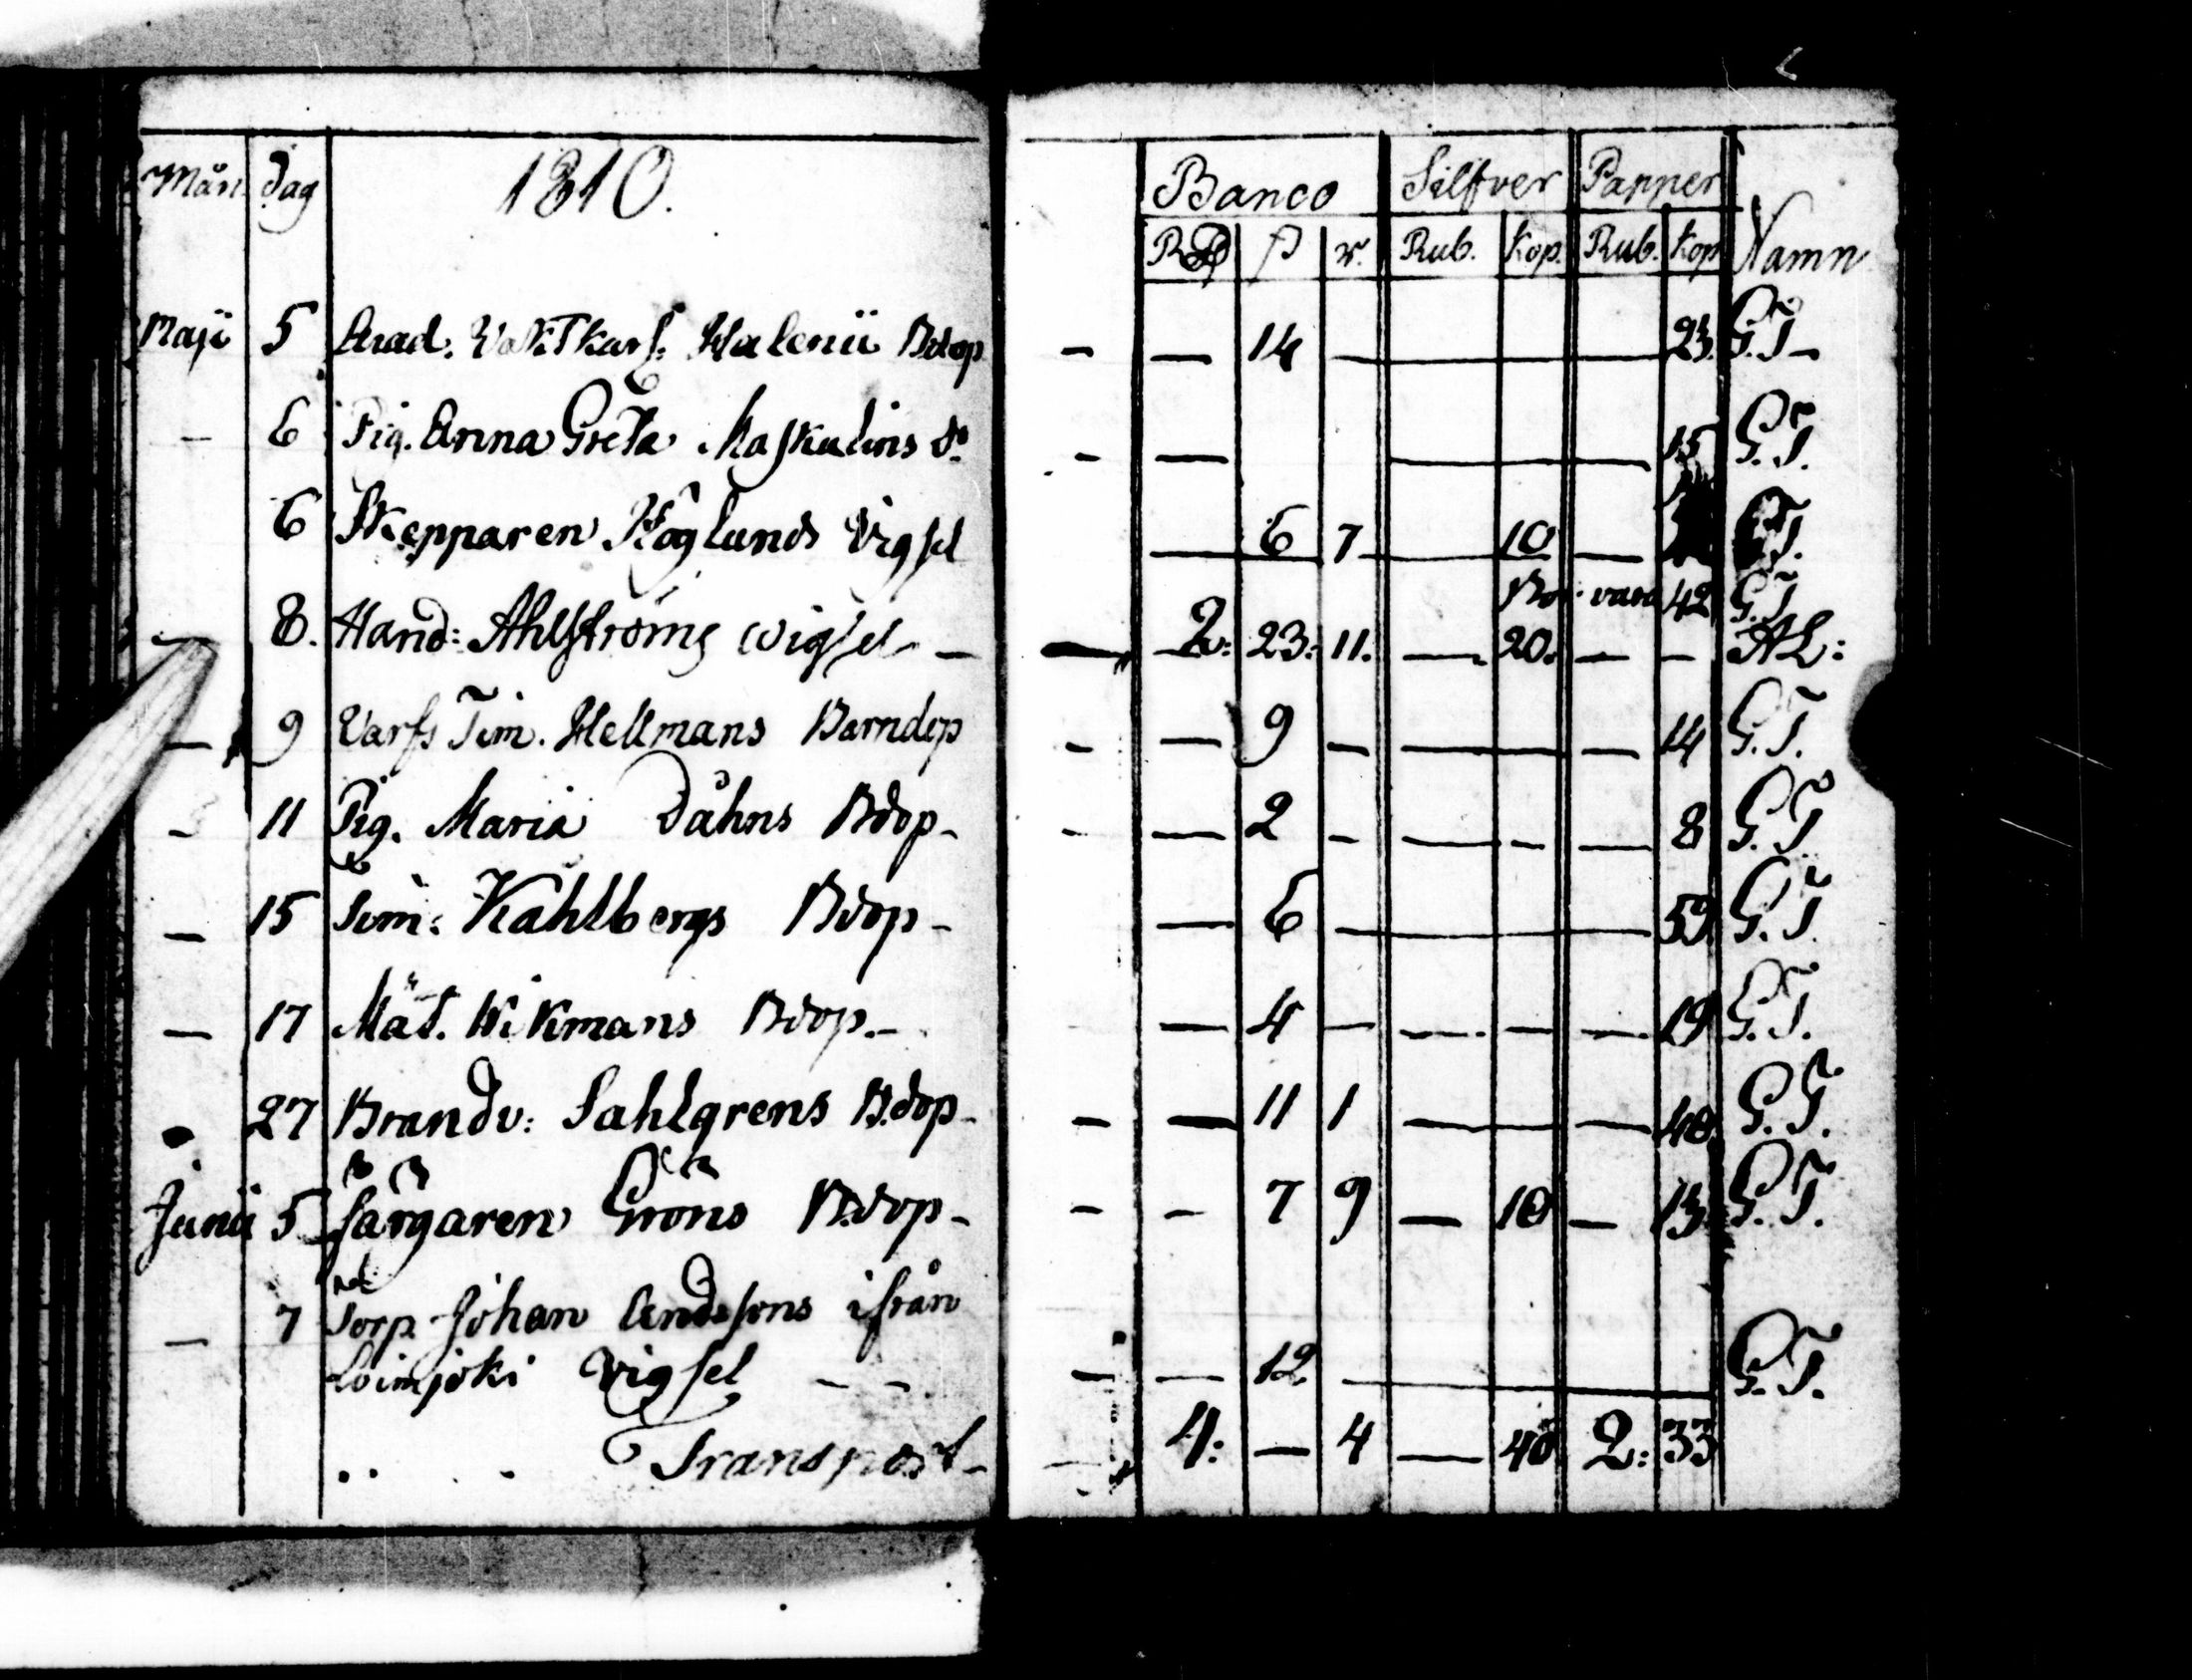 Mån dag 1810. Banco Silfver Papper Namn
RD ß r. Rub. Kop. Rub. Kop
Maji 5 Acad: Vaktkarl: Walenii Bdop - - 14 - 23. G.T-
- 6 Pig. Anna Greta Maskulins do - - 15 G.T.
6 Skepparen Höglunds Vigsel - 6 7 - 10 - G.T.
42 G.T
- 8. Hand: Ahlströms wigsel - - 2: 23: 11. - 20. - - AL:
- 9 Varfs Tim. Hellmans Barndop - - 9 - - - 14 G.T.
- 11 Pig. Maria Dåhns Bdop- - - 2 - - - - 8 G.T
- 15 Tim: Kahlbergs Bdop- - 6 - 59 G.T.
- 17 Mät. Wikmans Bdop.- - 4 - - - - 19 G.T.
- 27 Brandv: Sahlgrens B.dop- - - 11 1 - - 40 G.T.
Junii 5 färgaren Gröns B.dop- - - 7 9 - 10 - 13 G.T.
- 7 Torp. Johan Andssons ifrån
Loimjoki Vigsel - - - - 12 - G.T.
Transport- 4: - 4 - 40 2: 33